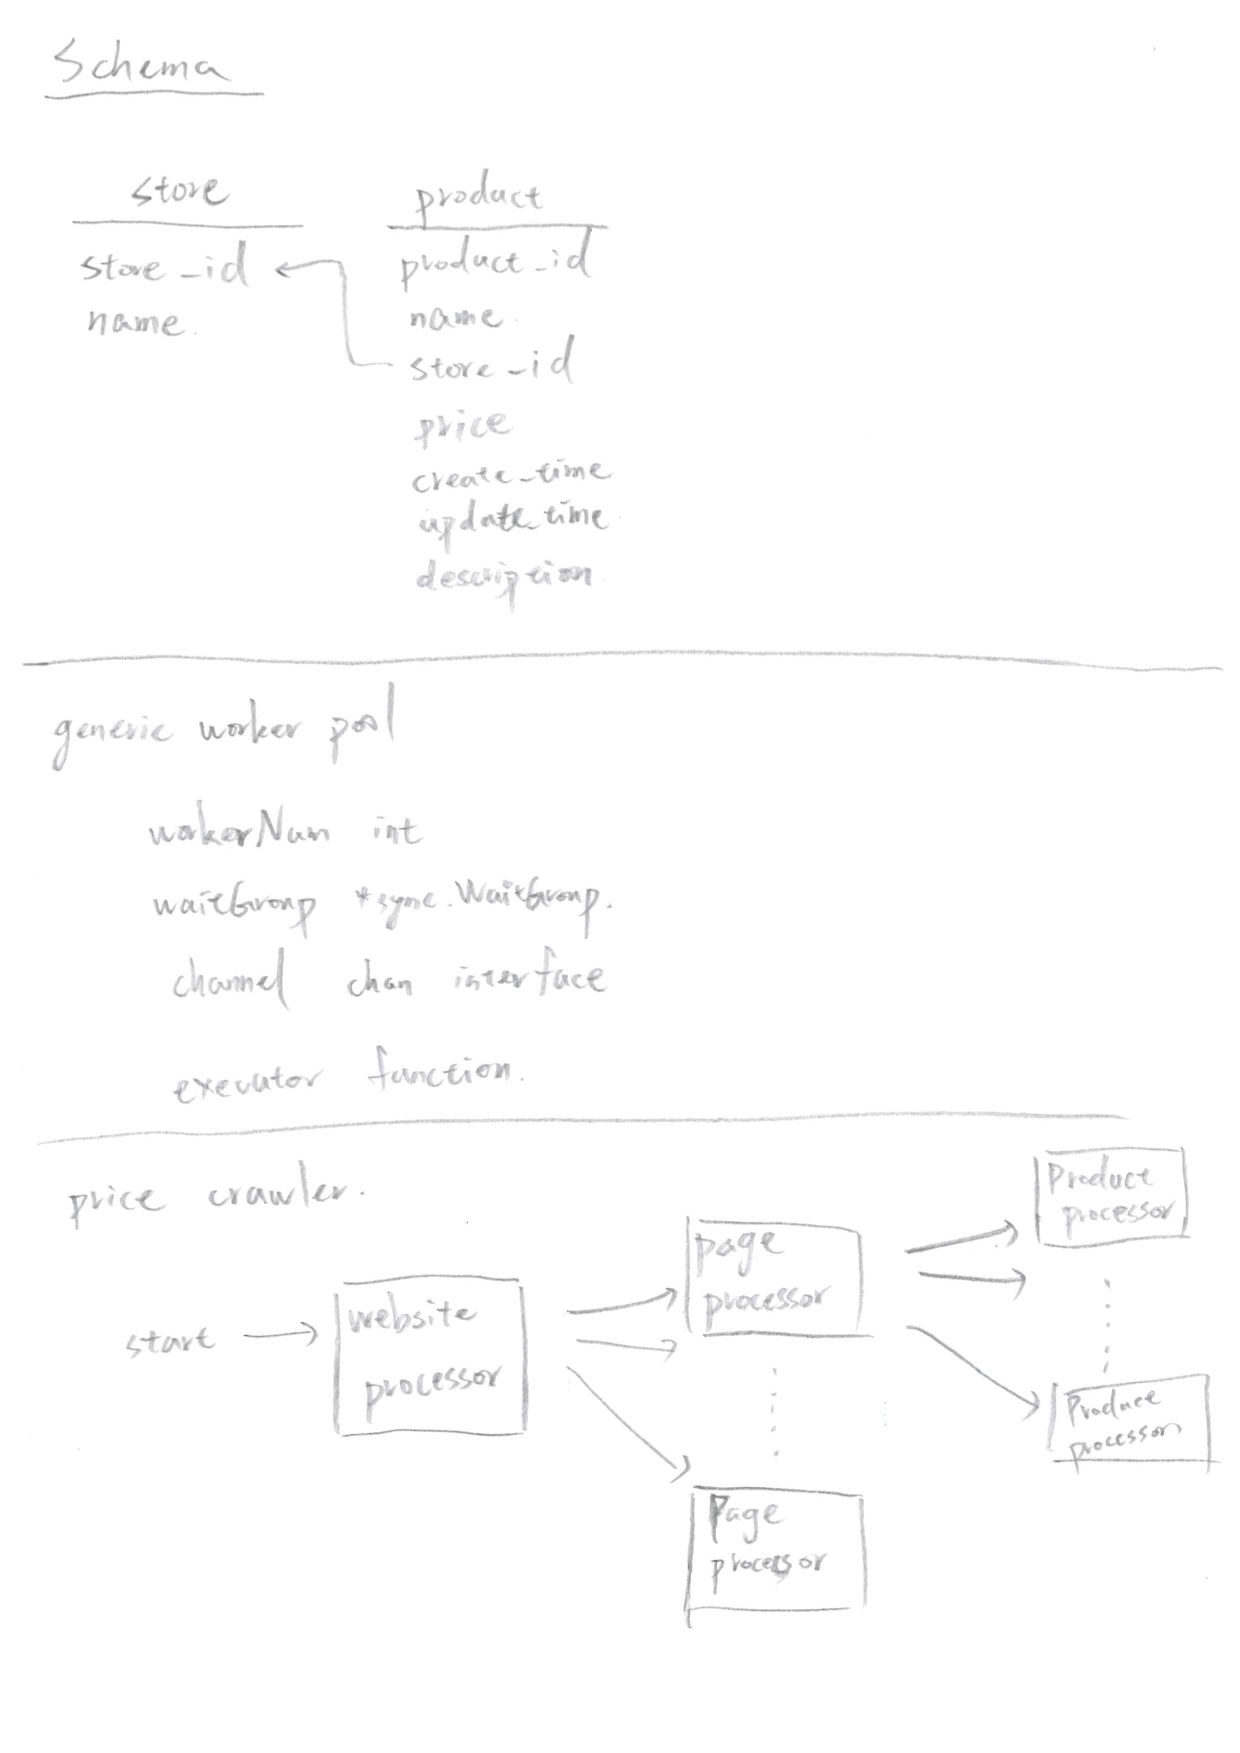 Schema
store
store_id
name.
product
product_id
name.
store_id
price
create_time
update_time
description.
generic worker pool
workerNum int
waitGroup *sync.WaitGroup.
channel chan interface
executor function.
price crawler.
start
website
processor
page
processor
Page
processor
Product
processor
Produce
processor